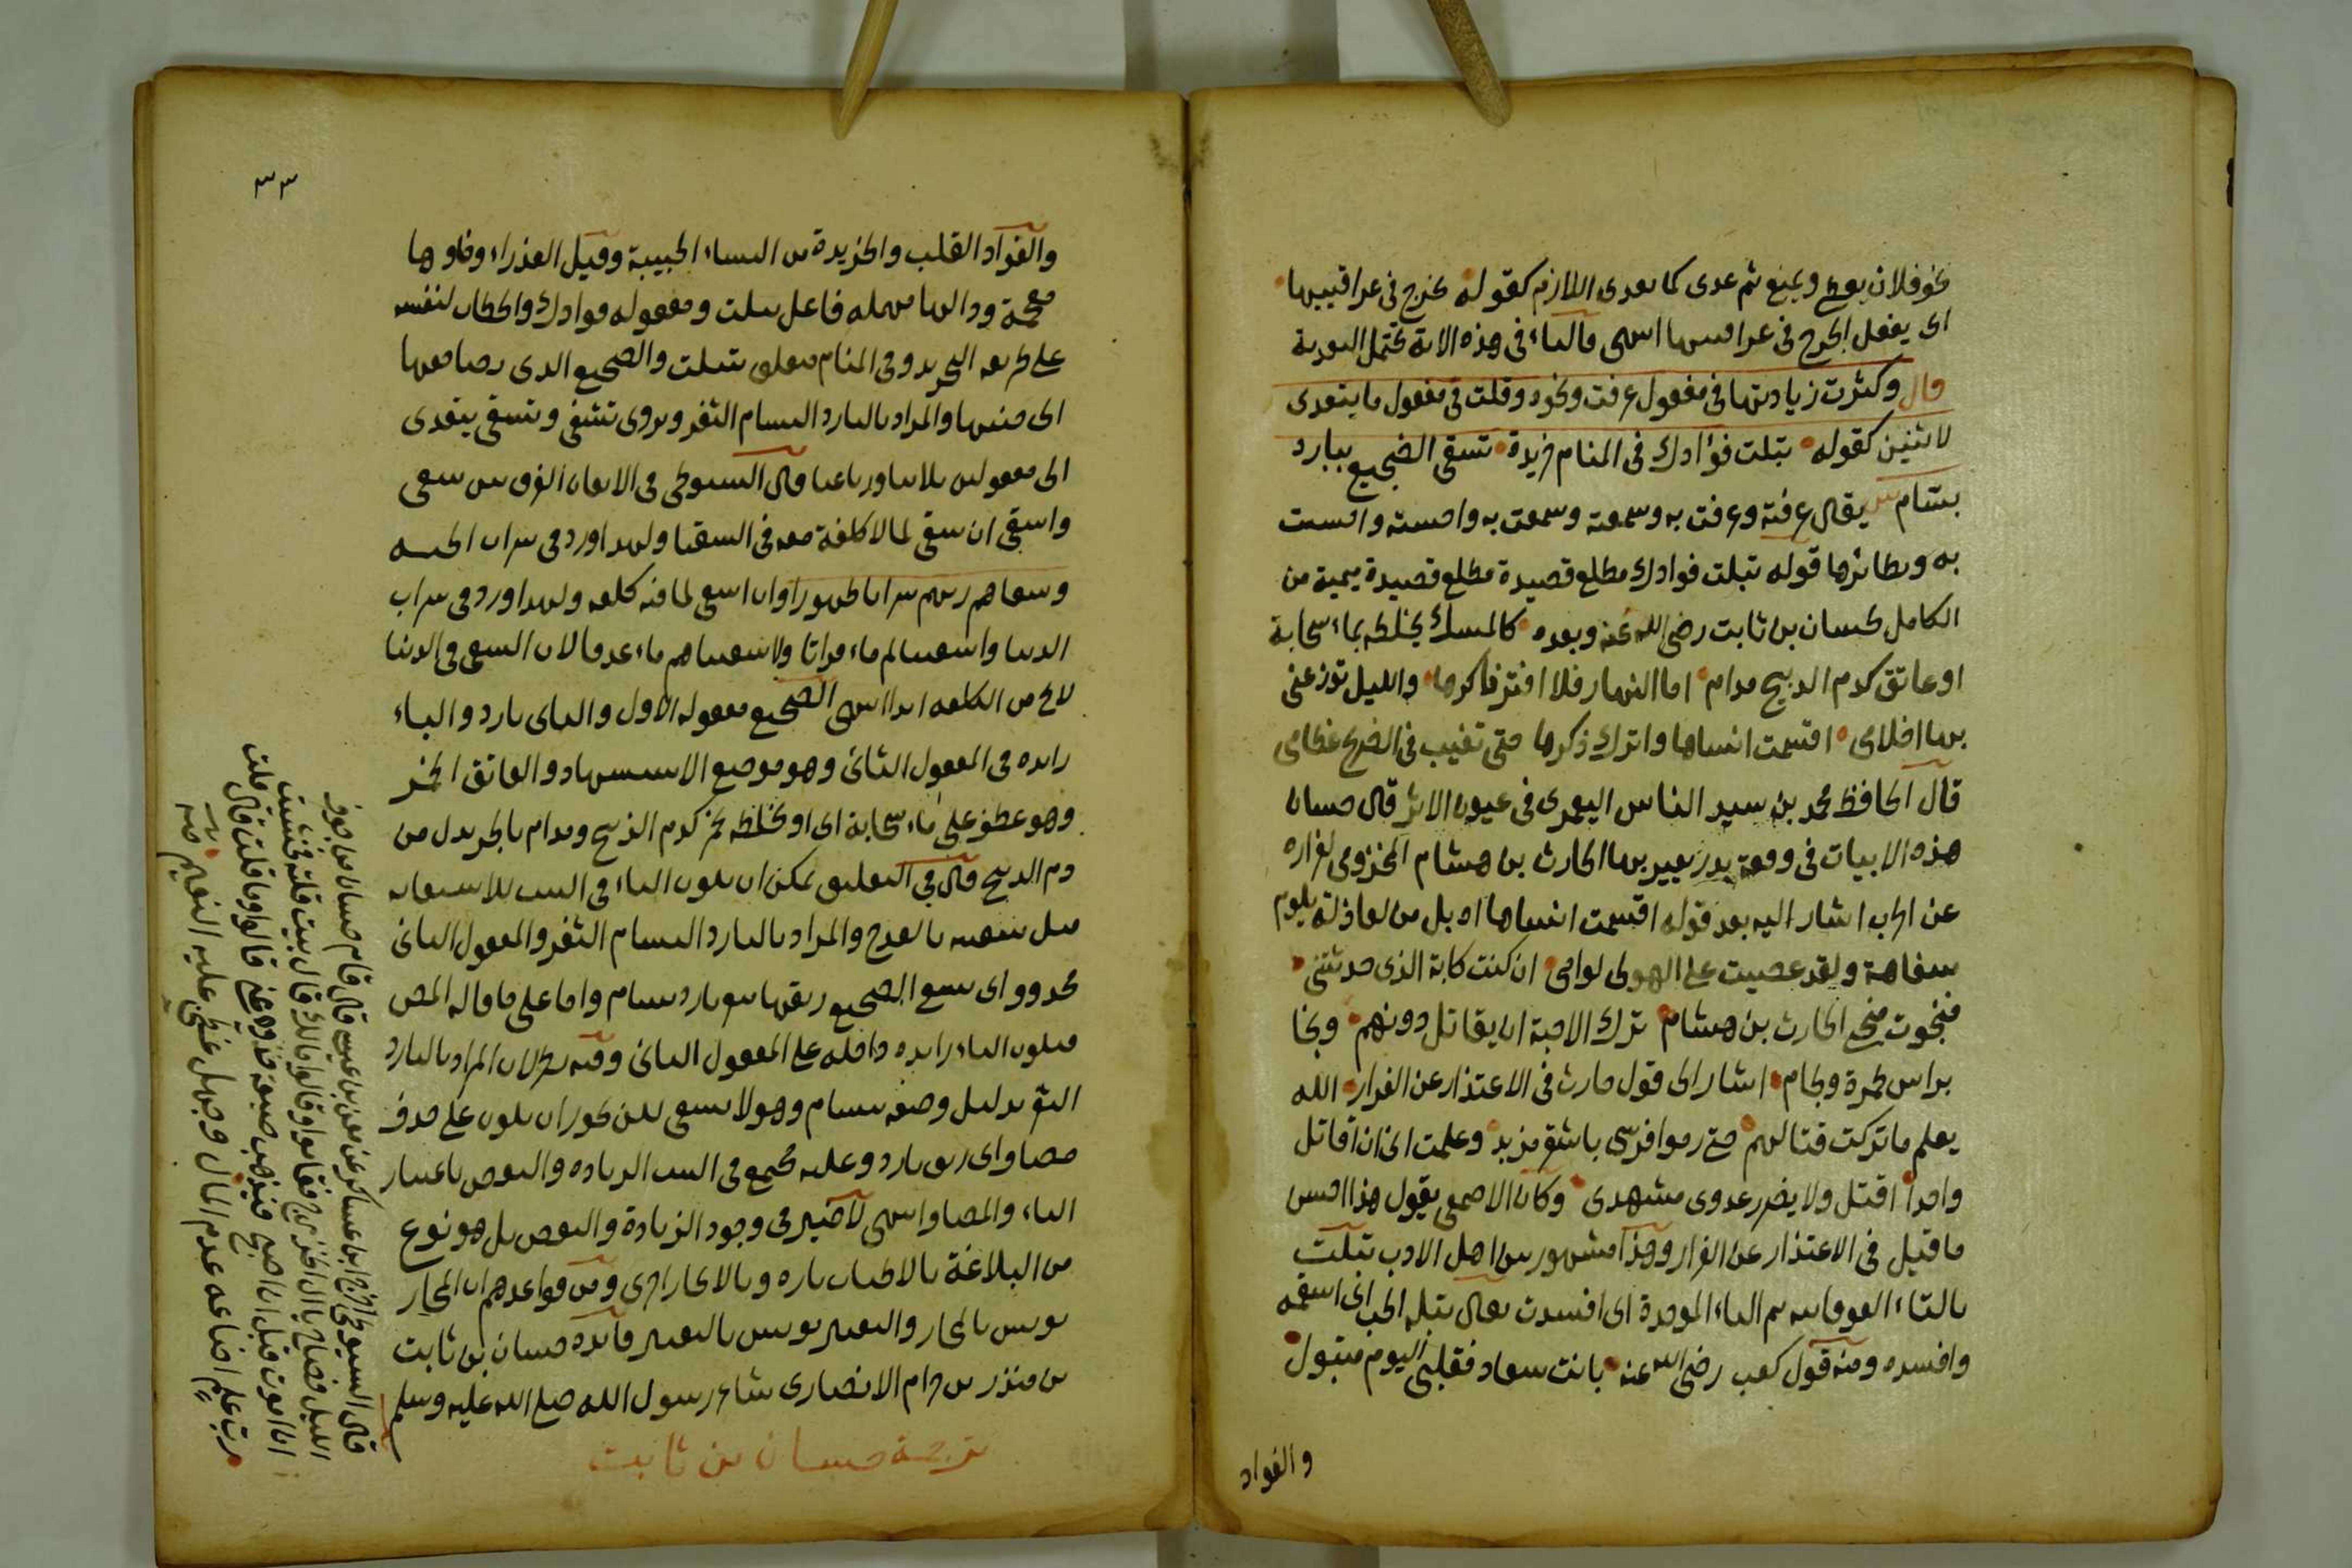 نحو فلان يعطي ويمنع ثم عدى كما يعدى اللازم كقوله يجرح في عراقيبها
اى يفعل الجرح في عراقيبها انتهى فالباء في هذه الاية تحتمل التعدية
قال وكثرت زيادتها في مفعول عرفت ونحوه وقلت في مفعول ما يتعدى
لاثنين كقوله تبلت فؤادك في المنام خريدة تسقى الضجيع ببارد
بسّام يقال عرفته وعرفت به وسمعته وسمعت به واحسسته واحسست
به ونظائرها قوله تبلت فوادك مطلع قصيدة مطلع قصيدة ميمية من
الكامل لحسان بن ثابت رضى الله عنه وبعده كالمسك تخلطه بماء سحابة
او عاتق كدم الذبيح مدام اما النهار فلا افتر ذاكرها والليل توزعنى
بها احلامى اقسمت انساها واترك ذكرها حتى تغيب في الضريح عظامى
قال الحافظ محمد بن سيد الناس اليعمرى فى عيون الاثر قال حسان
هذه الابيات في وقعة بدر يعير بها الحارث بن هشام المخزومى لفراره
عن اشار اليه بعد قوله اقسمت انساها بل من لعاذلة تلوم
سفاهة ولقد عصيت على الهوى لوامى ان كنت كاذبة الذى حدثتنى
فنجوت منجى الحارث بن هشام ترك الاحبة ان يقاتل دونهم ونجا
براس طمرة ولجام اشار الى قول حارث في الاعتذار عن الفرار الله
يعلم ما تركت قتالهم حتى رموا فرسى باشقر مزبد وعلمت انى ان اقاتل
واحدا اقتل ولا يضرر عدوى مشهدى وكان الاصمعى يقول هذا احسن
ما قيل فى الاعتذار عن الفرار وهذا مشهور بين اهل الادب تبلت
بالتاء الفوقانية ثم الباء الموحدة اى افسدت يقال تبله الحب اى اسقمه
وافسده ومنه قول كعب رضى الله عنه بانت سعاد فقلبى اليوم متبول
والفواد
٣٣
والفواد القلب والخريدة من النساء الحبيبة وقيل العذراء وخاوها
معجمة ودالها مهمله فاعل تبلت ومفعوله فوادك والخطاب لنفسه
على طريقه التجريد وفى المنام متعلق بتبلت والضجيع الذى
الى جنبها والمراد بالبارد البسام الثغر ويروى تشفى وتسقى يتعدى
الى مفعولين ثلاثيا ورباعيا قال السيوطى فى الاتقان الفرق بين سقى
واسقى ان سقى لما لا كلفة معه فى السقيا ولهذا ورد فى شراب الجنة
وسقاهم ربهم شرابا طهورا وان اسقى لما فيه كلفه ولهذا ورد فى شراب
الدنيا واسقيناكم ماء فراتا ولاسقيناهم ماء غدقا لان السقى فى الدنيا
لا يخ من الكلفه ابدا انتهى الضجيع مفعوله الاول والثانى بارد والباء
زايده فى المفعول الثانى وهو موضع الاستشهاد والعاتق الخمر
وهو عطف على ماء سحابة اى او تخلطه بخمر كدم الذبيح ومدام بالجر بدل من
دم الذبيح قال فى التعليق يمكن ان يكون الباء فى البيت للاستعانه
مثل شفيته بالقدح والمراد بالبارد البسام الثغر والمفعول الثانى
محذوف اى تسقى الضجيع ريقها بثغر بارد بسام واما على ما قاله المص
فيكون الباء زايده داخله على المفعول الثانى وفيه نظر لان المراد بالبارد
الثغر بدليل وصفه ببسام وهو لا يسقى لكن يجوز ان يكون على حذف
مضاف اى ريق بارد وعليه فيجتمع فى البيت الزياده والنقص باعتبار
الباء والمضاف انتهى لا ضير فى وجود الزيادة والنقص بل هو نوع
من البلاغة بالاطناب تاره وبالايجاز اخرى ومن قواعدهم ان المجاز
يونس بالمجاز والتغيير يونس بالتغيير فائده حسان بن ثابت
بن منذر بن حرام الانصارى شاعر رسول الله صلى الله عليه وسلم
ترجمة حسان بن ثابت
قال السيوطى اخرج ابن عساكر عن قال قام حسان من جوف
الليل فصاح يا ال الخزرج فقاموا وقالوا مالك قال بيت قلته فخشيت
ان اموت قبل ان اصبح فيذهب ضيعة خذوه عنى قالوا وما قلت قال قلت
رب علم اضاعه عدم المال وجهل غطى عليه النعيم